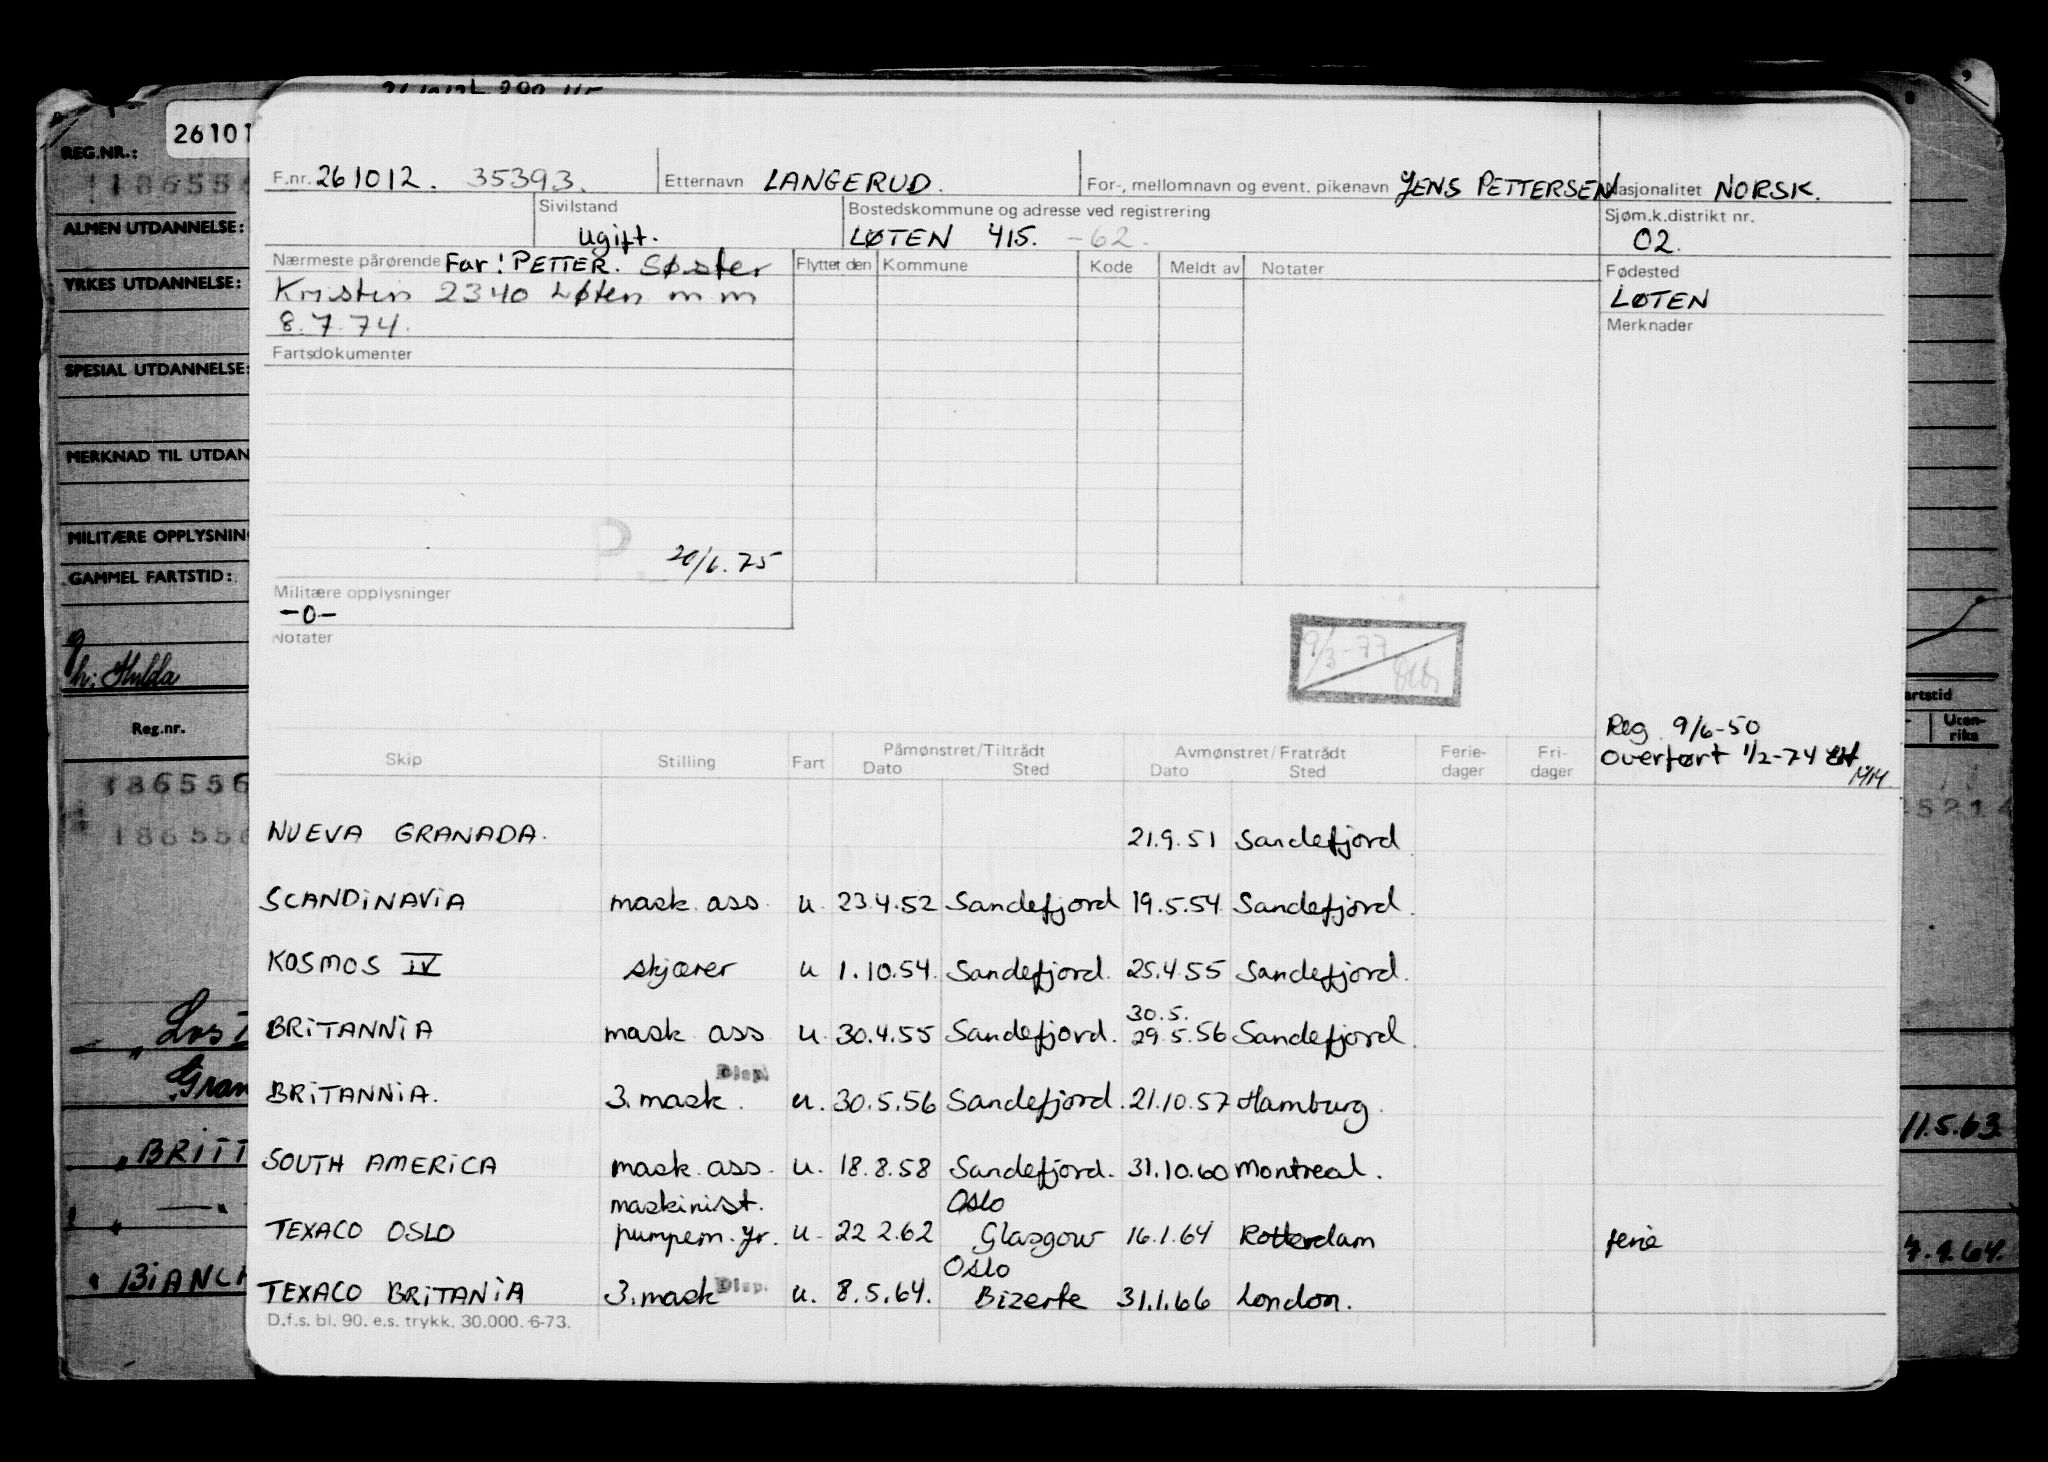 REG.NR.:
26101
ALMEN UTDANNELSE:
YRKES UTDANNELSE:
SPESIAL UTDANNELSE:
MERKNAD TIL UTDAN
MILITÆRE OPPLYSNIN
GAMMEL FARTSTID:
h: Hulda
Reg.nr.
186556
186556
Gran
BRITT
BIANCA
F.nr. 261012. 35393. Etternavn LANGERUD. For-, mellomnavn og event. pikenavn JENS PETTERSEN Nasjonalitet NORSK.
Sivilstand Bostedskommune og adresse ved registrering Sjøm.k.distrikt nr.
ugift. LØTEN 415. -62. 02.
Nærmeste pårørende Far: PETTER. Søster Flyttet den Kommune Kode Meldt av Notater Fødested
Kristin 2340 Løten m m LØTEN
8.7.74. Merknader
Fartsdokumenter
20/6.75
Militære opplysninger
-0-
Notater
9/3-77
Reg. 9/6-50
Overført 1/2-74
Skip Stilling Fart Påmønstret/Tiltrådt Avmønstret/Fratrådt Ferie- Fri-
Dato Sted Dato Sted dager dager
NUEVA GRANADA. 21.9.51 Sandefjord
SCANDINAVIA mask. ass. u. 23.4.52 Sandefjord 19.5.54 Sandefjord.
KOSMOS IV skjærer u 1.10.54. Sandefjord. 25.4.55 Sandefjord.
30.5.
BRITANNIA mask ass u. 30.4.55 Sandefjord. 29.5.56 Sandefjord.
Disp.
BRITANNIA. 3. mask. u. 30.5.56 Sandefjord. 21.10.57 Hamburg.
SOUTH AMERICA mask. ass. u. 18.8.58 Sandefjord. 31.10.60 Montreal.
maskinist. Oslo
TEXACO OSLO pumpem. yr. u- 22 2.62 Glasgow 16.1.64 Rotterdam ferie
Oslo
TEXACO BRITANIA 3. mask Disp. u. 8.5.64. Bizerte 31.1.66 London.
D.f.s. bl. 90. e.s. trykk. 30.000. 6-73.
artstid
Uten-
riks
11.5.63